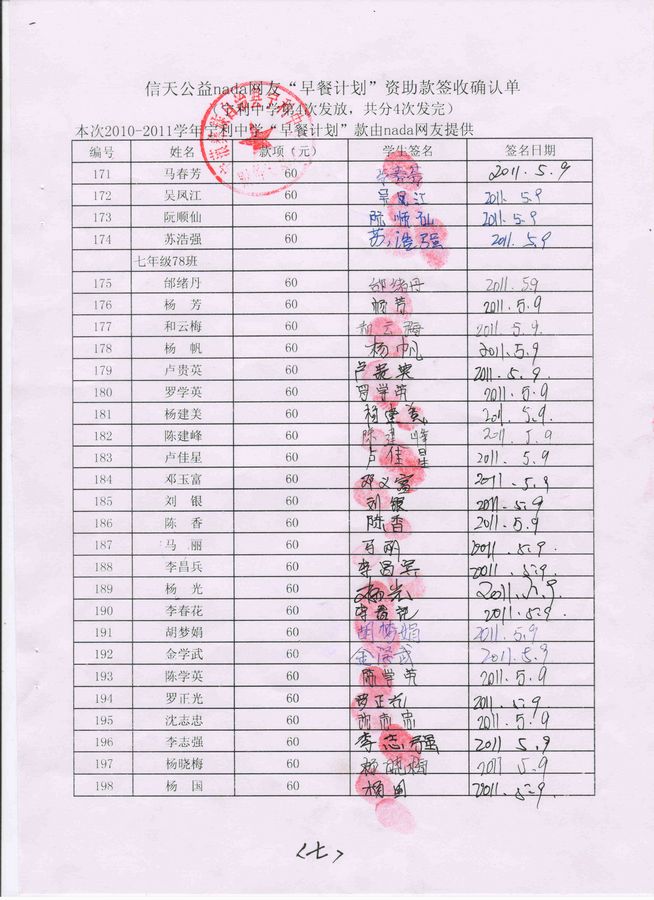 信天公益nada网友“早餐计划”资助款签收确认单
利中学第4次发放，共分4次发完）
本次2010-2011学年宁利中学“早餐计划”款由nada网友提供
编号 姓名 款项（元） 学生签名 签名日期
171 马春芳 60 2011.5.9
172 吴凤江 60 吴凤江 2011.5.9
173 阮顺仙 60 阮顺仙 2011.5.9
174 苏浩强 60 苏浩强 2011.5.9
七年级78班
175 邰绪丹 60 邰绪丹 2011.5.9
176 杨 芳 60 杨芳 2011.5.9
177 和云梅 60 和云梅 2011.5.9
178 杨 帆 60 杨帆 2011.5.9
179 卢贵英 60 2011.5.9
180 罗学英 60 罗学英 2011.5.9
181 杨建美 60 杨建美 2011.5.9
182 陈建峰 60 陈建峰 2011.5.9
183 卢佳星 60 卢佳星 2011.5.9
184 邓玉富 60 邓玉富 2011.5.9
185 刘 银 60 刘银 2011.5.9
186 陈 香 60 陈香 2011.5.9
187 马 丽 60 马丽 2011.5.9
188 李昌兵 60 李昌兵 2011.5.9
189 杨 光 60 杨光 2011.5.9
190 李春花 60 李春花 2011.5.9
191 胡梦娟 60 胡梦娟 2011.5.9
192 金学武 60 金学武 2011.5.9
193 陈学英 60 陈学英 2011.5.9
194 罗正光 60 罗正光 2011.5.9
195 沈志忠 60 2011.5.9
196 李志强 60 李志强 2011.5.9
197 杨晓梅 60 杨晓梅 2011.5.9
198 杨 国 60 杨国 2011.5.9
<七>